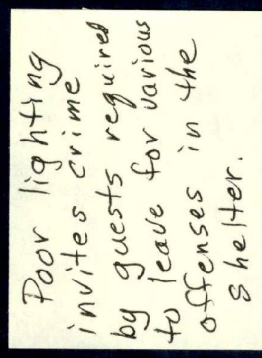 Poor lighting
invites crime
by guests required
to leave for various
offenses in the
shelter.